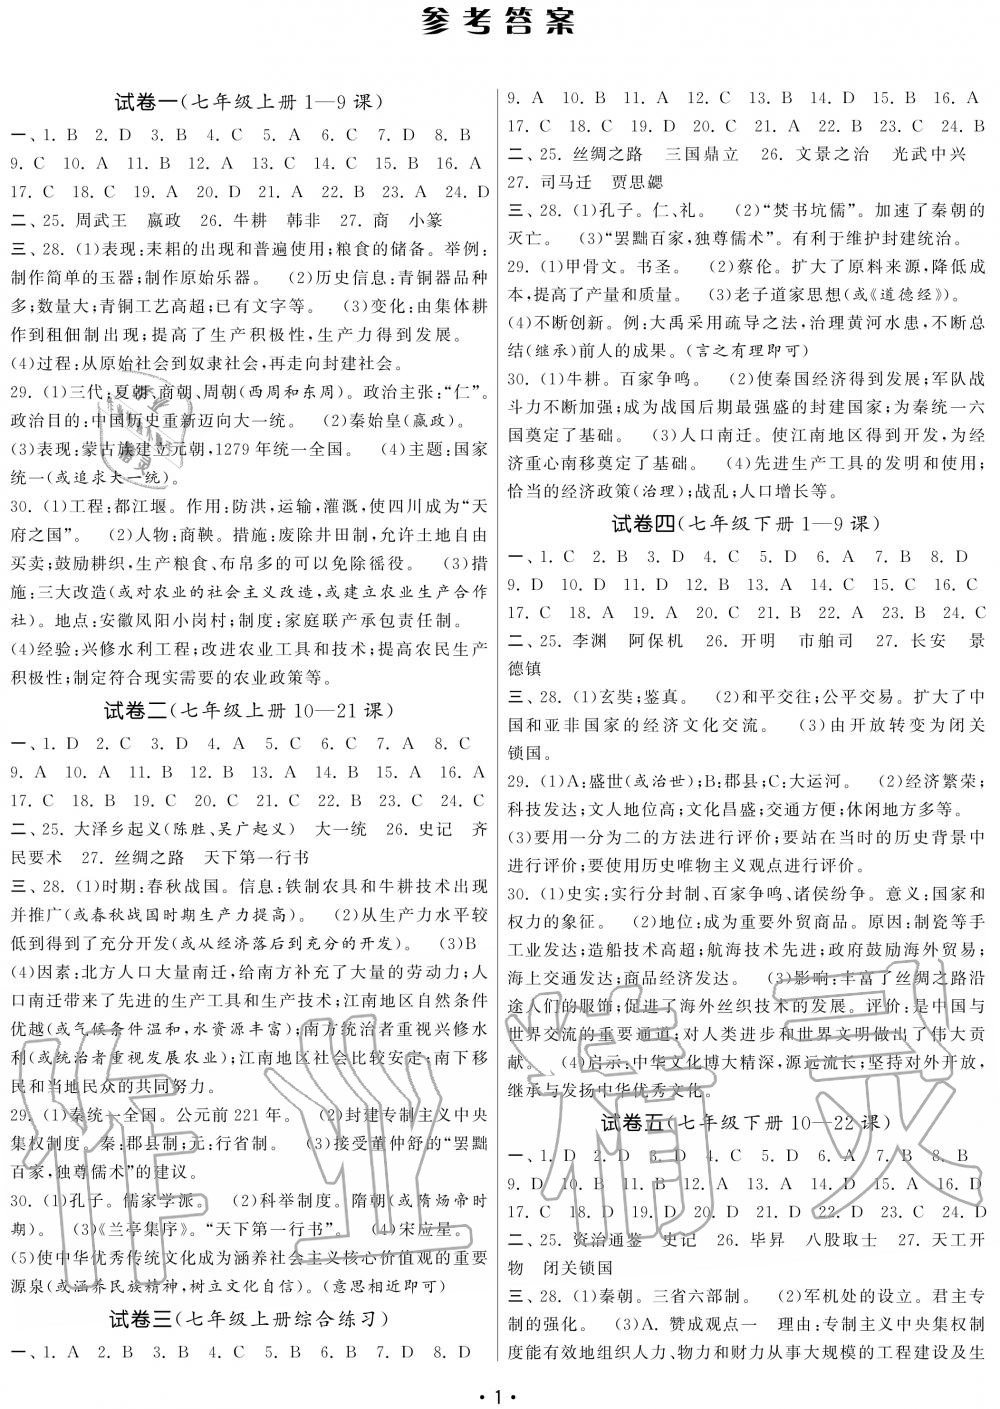 参考答案
试卷一(七年级上册1—9课)
一、1. B 2. D 3. B 4. C 5. A 6. C 7. D 8. B
9. C 10. A 11. B 12. A 13. C 14. C 15. B 16. A
17. C 18. C 19. A 20. D 21. A 22. B 23. A 24. D
二、25. 周武王 嬴政 26. 牛耕 韩非 27. 商 小篆
三、28. (1)表现:耒耜的出现和普遍使用;粮食的储备。举例:
制作简单的玉器;制作原始乐器。 (2)历史信息:青铜器品种
多;数量大;青铜工艺高超;已有文字等。 (3)变化:由集体耕
作到租佃制出现;提高了生产积极性,生产力得到发展。
(4)过程:从原始社会到奴隶社会,再走向封建社会。
29. (1)三代:夏朝、商朝、周朝(西周和东周)。政治主张:“仁”。
政治目的:中国历史重新迈向大一统。 (2)秦始皇(嬴政)。
(3)表现:蒙古族建立元朝,1279年统一全国。 (4)主题:国家
统一(或追求大一统)。
30. (1)工程:都江堰。作用:防洪,运输,灌溉,使四川成为“天
府之国”。 (2)人物:商鞅。措施:废除井田制,允许土地自由
买卖;鼓励耕织,生产粮食、布帛多的可以免除徭役。 (3)措
施:三大改造(或对农业的社会主义改造,或建立农业生产合作
社)。地点:安徽凤阳小岗村;制度:家庭联产承包责任制。
(4)经验:兴修水利工程;改进农业工具和技术;提高农民生产
积极性;制定符合现实需要的农业政策等。
试卷二(七年级上册10—21课)
一、1. D 2. C 3. D 4. A 5. C 6. C 7. A 8. C
9. A 10. A 11. B 12. B 13. A 14. B 15. A 16. A
17. C 18. B 19. C 20. C 21. C 22. B 23. C 24. C
二、25. 大泽乡起义(陈胜、吴广起义) 大一统 26. 史记 齐
民要术 27. 丝绸之路 天下第一行书
三、28. (1)时期:春秋战国。信息:铁制农具和牛耕技术出现
并推广(或春秋战国时期生产力提高)。 (2)从生产力水平较
低到得到了充分开发(或从经济落后到充分的开发)。 (3)B
(4)因素:北方人口大量南迁,给南方补充了大量的劳动力;人
口南迁带来了先进的生产工具和生产技术;江南地区自然条件
优越(或气候条件温和,水资源丰富);南方统治者重视兴修水
利(或统治者重视发展农业);江南地区社会比较安定;南下移
民和当地民众的共同努力。
29. (1)秦统一全国。公元前221年。 (2)封建专制主义中央
集权制度。秦:郡县制;元:行省制。 (3)接受董仲舒的“罢黜
百家,独尊儒术”的建议。
30. (1)孔子。儒家学派。 (2)科举制度。隋朝(或隋炀帝时
期)。 (3)《兰亭集序》。“天下第一行书”。 (4)宋应星。
(5)使中华优秀传统文化成为涵养社会主义核心价值观的重要
源泉(或涵养民族精神,树立文化自信)。(意思相近即可)
试卷三(七年级上册综合练习)
一、1. A 2. B 3. C 4. C 5. B 6. D 7. B 8. D
9. A 10. B 11. A 12. C 13. B 14. D 15. B 16. A
17. C 18. C 19. D 20. C 21. A 22. B 23. C 24. B
二、25. 丝绸之路 三国鼎立 26. 文景之治 光武中兴
27. 司马迁 贾思勰
三、28. (1)孔子。仁、礼。 (2)“焚书坑儒”。加速了秦朝的
灭亡。 (3)“罢黜百家,独尊儒术”。有利于维护封建统治。
29. (1)甲骨文。书圣。 (2)蔡伦。扩大了原料来源,降低成
本,提高了产量和质量。 (3)老子道家思想(或《道德经》)。
(4)不断创新。例:大禹采用疏导之法,治理黄河水患,不断总
结(继承)前人的成果。(言之有理即可)
30. (1)牛耕。百家争鸣。 (2)使秦国经济得到发展;军队战
斗力不断加强;成为战国后期最强盛的封建国家;为秦统一六
国奠定了基础。 (3)人口南迁。使江南地区得到开发,为经
济重心南移奠定了基础。 (4)先进生产工具的发明和使用;
恰当的经济政策(治理);战乱;人口增长等。
试卷四(七年级下册1—9课)
一、1. C 2. B 3. D 4. C 5. D 6. A 7. B 8. D
9. D 10. D 11. D 12. B 13. A 14. C 15. C 16. C
17. C 18. A 19. A 20. C 21. B 22. A 23. B 24. C
二、25. 李渊 阿保机 26. 开明 市舶司 27. 长安 景
德镇
三、28. (1)玄奘;鉴真。 (2)和平交往;公平交易。扩大了中
国和亚非国家的经济文化交流。 (3)由开放转变为闭关
锁国。
29. (1)A:盛世(或治世);B:郡县;C:大运河。 (2)经济繁荣;
科技发达;文人地位高;文化昌盛;交通方便;休闲地方多等。
(3)要用一分为二的方法进行评价;要站在当时的历史背景中
进行评价;要使用历史唯物主义观点进行评价。
30. (1)史实:实行分封制、百家争鸣、诸侯纷争。意义:国家和
权力的象征。 (2)地位:成为重要外贸商品。原因:制瓷等手
工业发达;造船技术高超;航海技术先进;政府鼓励海外贸易;
海上交通发达;商品经济发达。 (3)影响:丰富了丝绸之路沿
途人们的服饰;促进了海外丝织技术的发展。评价:是中国与
世界交流的重要通道;对人类进步和世界文明做出了伟大贡
献。 (4)启示:中华文化博大精深,源远流长;坚持对外开放,
继承与发扬中华优秀文化。
试卷五(七年级下册10—22课)
一、1. D 2. D 3. D 4. C 5. D 6. A 7. B 8. B
9. D 10. B 11. B 12. A 13. A 14. D 15. A 16. D
17. C 18. D 19. D 20. D 21. D 22. D 23. C 24. D
二、25. 资治通鉴 史记 26. 毕昇 八股取士 27. 天工开
物 闭关锁国
三、28. (1)秦朝。三省六部制。 (2)军机处的设立。君主专
制的强化。 (3)A. 赞成观点一 理由:专制主义中央集权制
度能有效地组织人力、物力和财力从事大规模的工程建设及生
· 1 ·
作业精灵